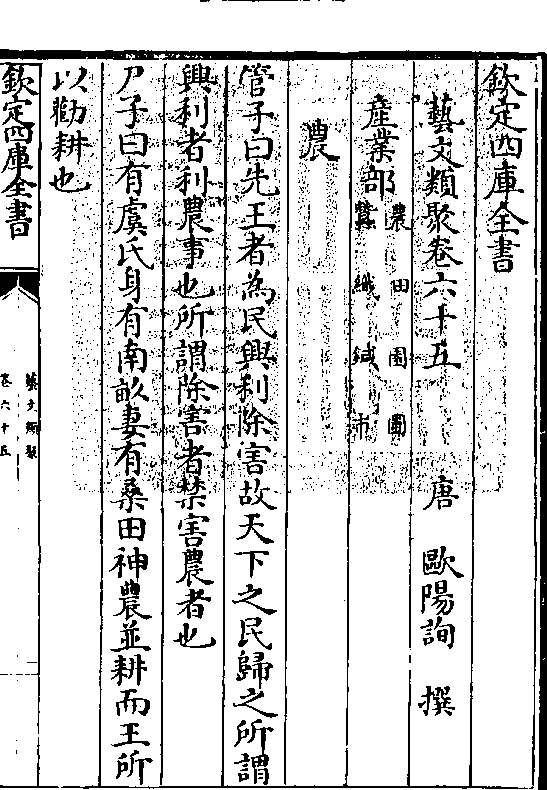 欽定四庫全書
藝文類聚卷六十五　唐　歐陽詢　撰
產業部　農　田　園　圃
蠶　織　鍼　市
農
管子曰先王者為民興利除害故天下之民歸之所謂
興利者利農事也所謂除害者禁害農者也
尸子曰有虞氏身有南畝妻有桑田神農並耕而王所
以勸耕也
欽定四庫全書
藝文類聚
卷六十五
一